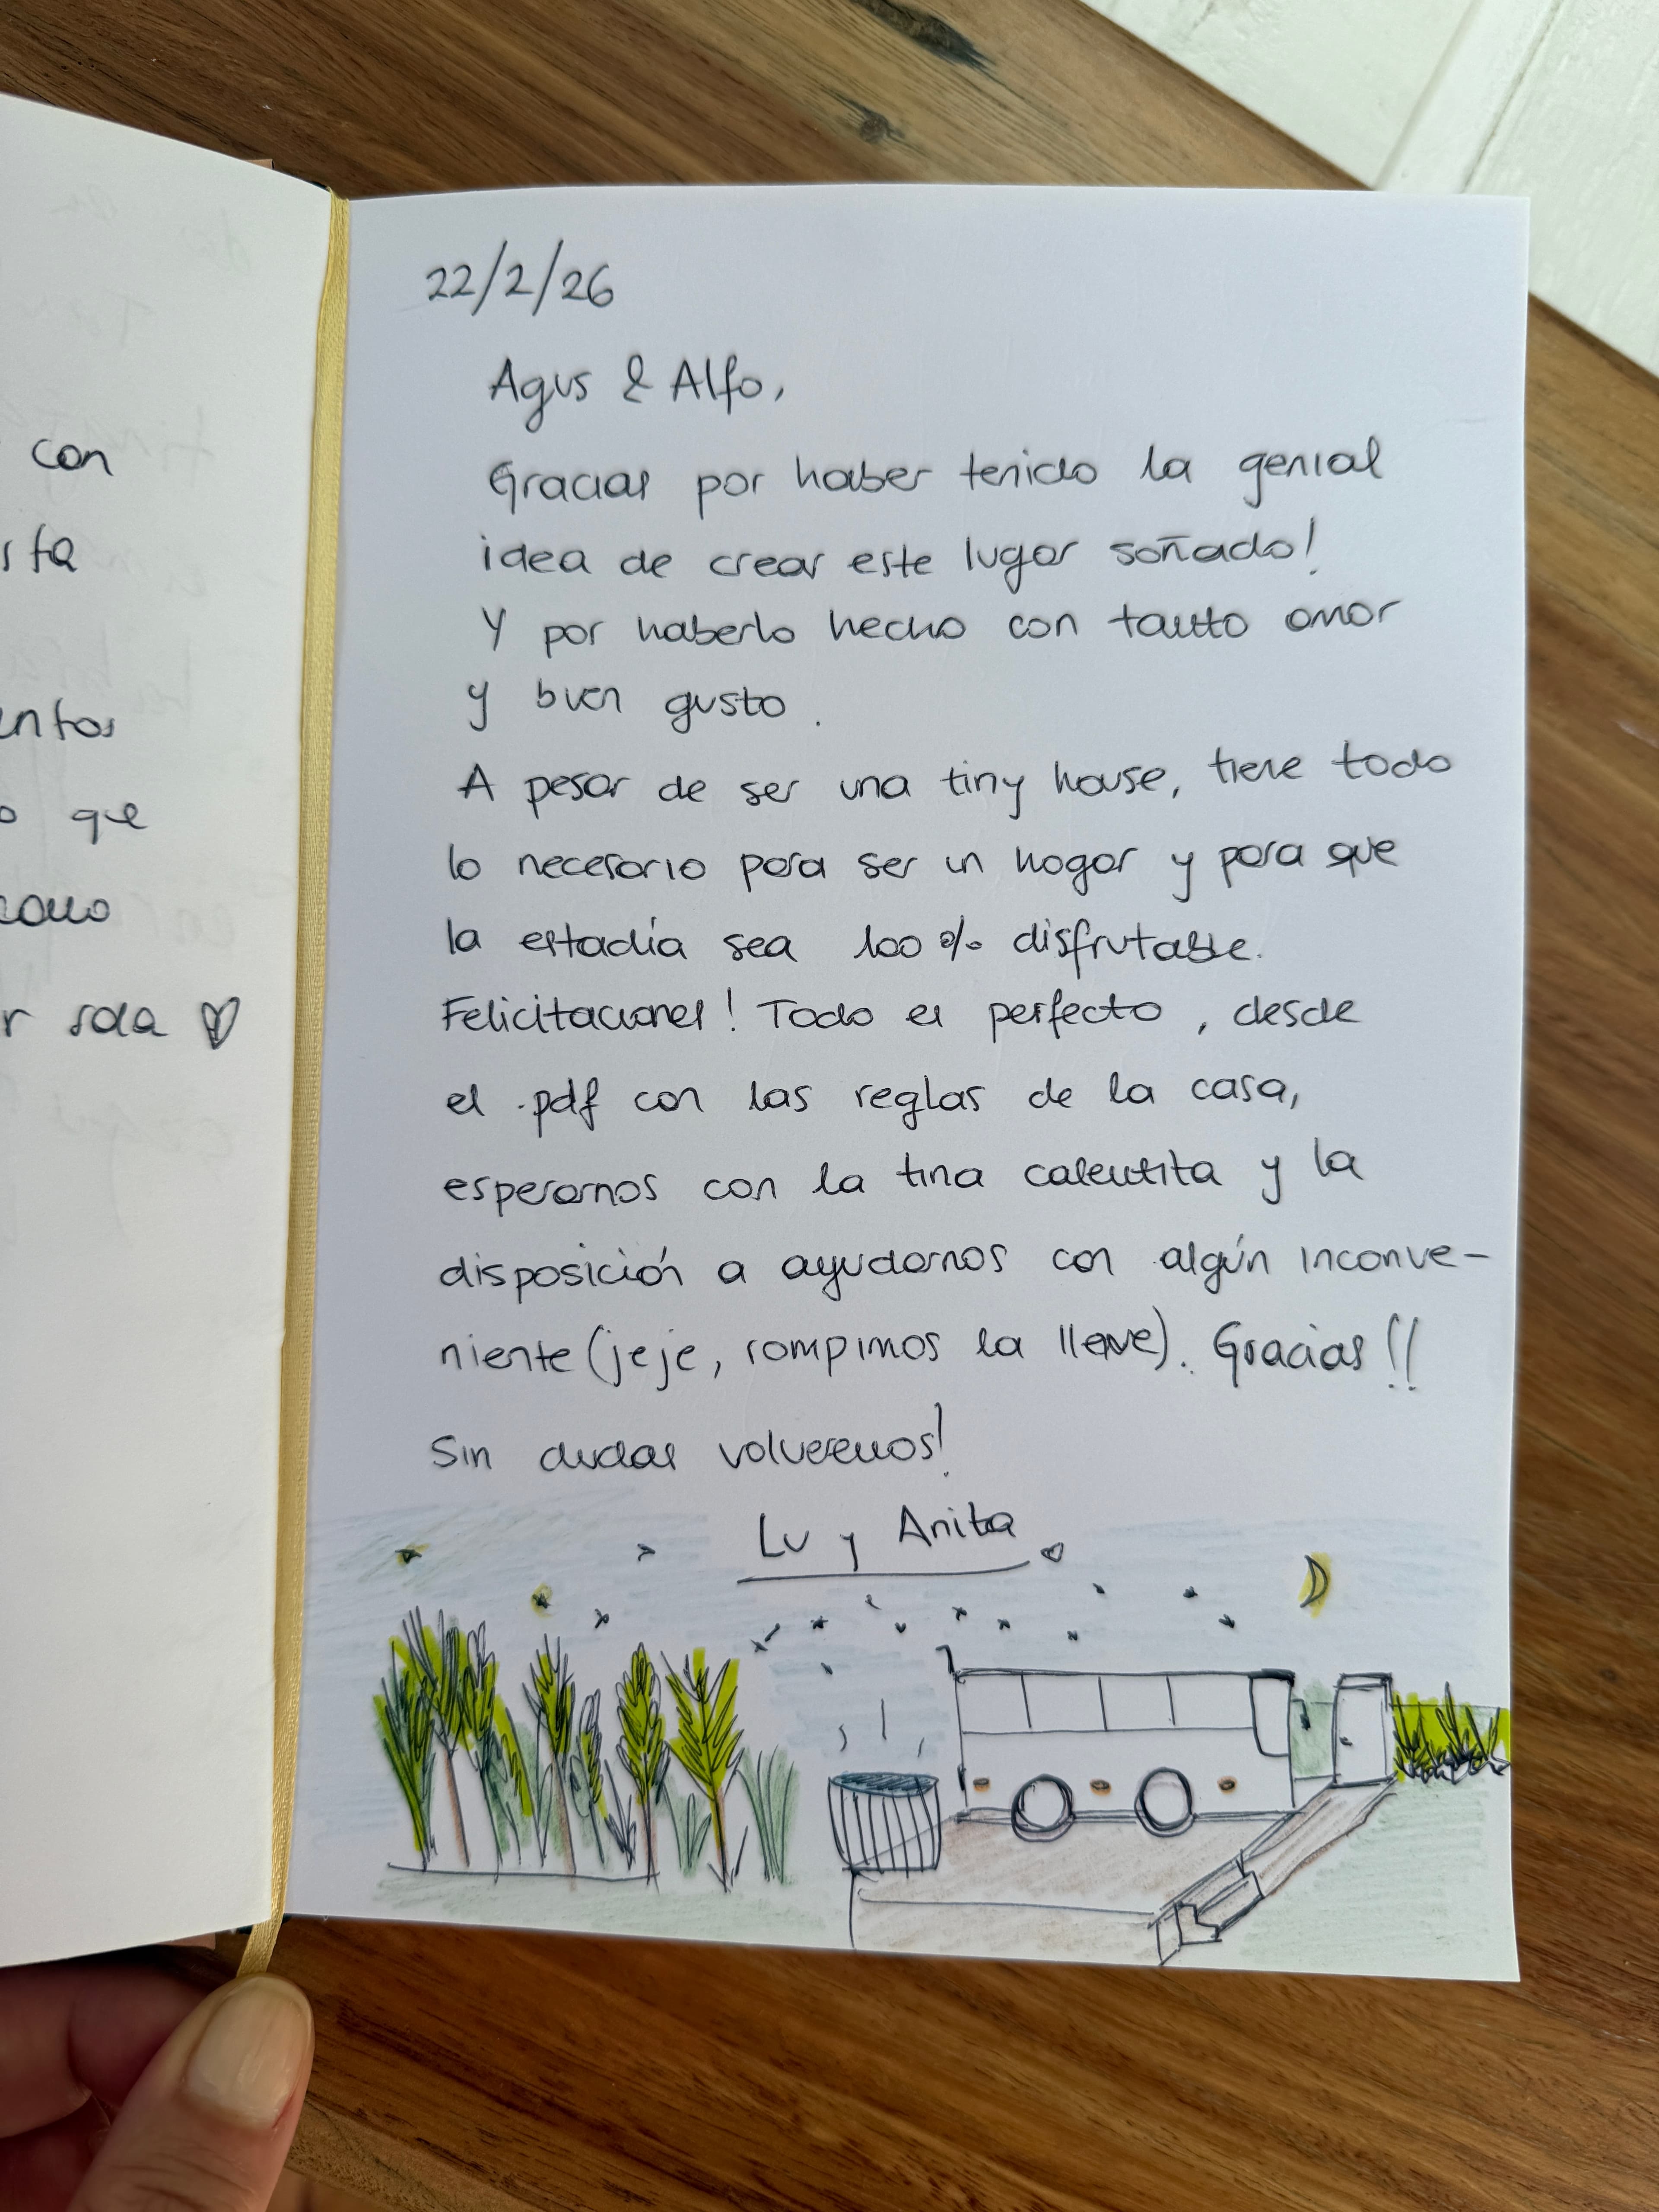 con
sta
entos
o que
como
r sola ♡
22/2/26
Agus & Alfo,
Gracias por haber tenido la genial
idea de crear este lugar soñado!
Y por haberlo hecho con tanto amor
y buen gusto.
A pesar de ser una tiny house, tiene todo
lo necesario para ser un hogar y para que
la estadía sea 100% disfrutable.
Felicitaciones! Todo es perfecto, desde
el .pdf con las reglas de la casa,
esperarnos con la tina calentita y la
disposición a ayudarnos con algún inconve-
niente (jeje, rompimos la llave). Gracias!!
Sin dudas volveremos!
Lu y Anita ♡